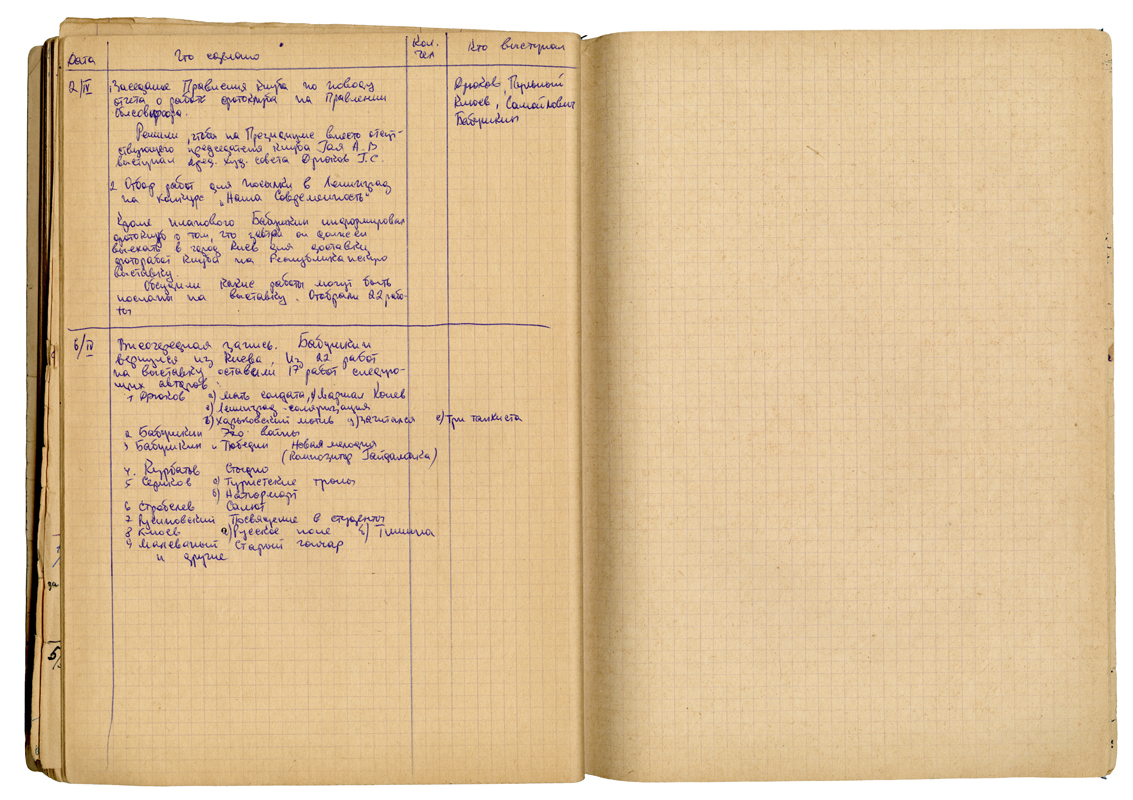 Дата Что сделано Кол. чел Кто выступал
2/IV Заседание Правления клуба по поводу
отчета о работе фотоклуба на Правлении
облсовпрофа.
Решили, чтобы на Президиуме вместо отсут-
ствующего председателя клуба Гая А.В
выступал пред. худ. совета Дрюков Г.С.
2 Отбор работ для посылки в Ленинград
на конкурс „Наша Современность"
Кроме планового Бабушкин информировал
фотоклуб о том, что завтра он должен
выехать в город Киев для доставки
фоторабот клуба на Республиканскую
выставку.
Обсудили какие работы могут быть
посланы на выставку. Отобрали 22 рабо-
ты
Дрюков,
Клюев, Самойлович
Бабушкин
6/IV Внеочередная запись. Бабушкин
вернулся из Киева. Из 22 работ
на выставку оставили 17 работ следую-
щих авторов:
1 Дрюков а) Мать солдата, Маршал Конев
Ленинград - соляризация
Харьковский мотив Зачитался е) Три танкиста
2 Бабушкин Эхо войны
3 Бабушкин и Новая мелодия
(Композитор Гайдамака)
4. Курбатов Стыдно
5 а) Туристские тропы
б) Натюрморт
6 Салют
7 Русиновский Посвящение в студенты
8 Клюев а) Русское поле б) Тишина
9 Малеваный Старый гончар
и другие
за
5/